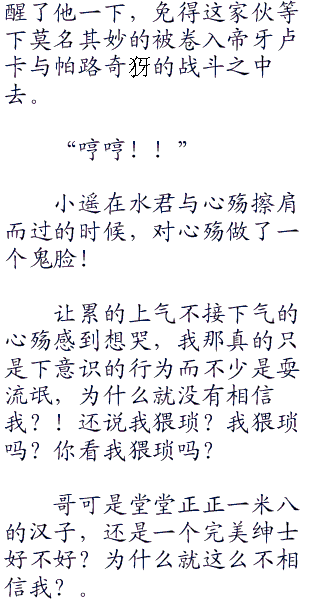 醒了他一下，免得这家伙等
下莫名其妙的被卷入帝牙卢
卡与帕路奇犽的战斗之中
去。
“哼哼！！”
小遥在水君与心殇擦肩
而过的时候，对心殇做了一
个鬼脸！
让累的上气不接下气的
心殇感到想哭，我那真的只
是下意识的行为而不少是耍
流氓，为什么就没有相信
我？！还说我猥琐？我猥琐
吗？你看我猥琐吗？
哥可是堂堂正正一米八
的汉子，还是一个完美绅士
好不好？为什么就这么不相
信我？。